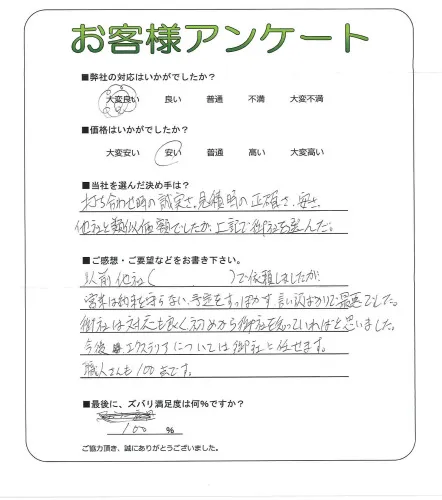 お客様アンケート
■弊社の対応はいかがでしたか?
大変良い 良い 普通 不満 大変不満
■価格はいかがでしたか?
大変安い 安い 普通 高い 大変高い
■当社を選んだ決め手は?
打ち合わせ時の誠実さ、見積時の正確さ、安さ、
他社と類似価額でしたが、上記で御社を選んだ。
■ご感想・ご要望などをお書き下さい。
以前他社( )で依頼しましたが
営業は約束を守らない、予定をすっぽかす、言い訳ばかりで最悪でした。
御社は対応も良く初めから御社を知っていればと思いました。
今後 エクステリアについては御社に任せます。
職人さんも100点です。
■最後に、ズバリ満足度は何%ですか?
100 %
ご協力頂き、誠にありがとうございました。